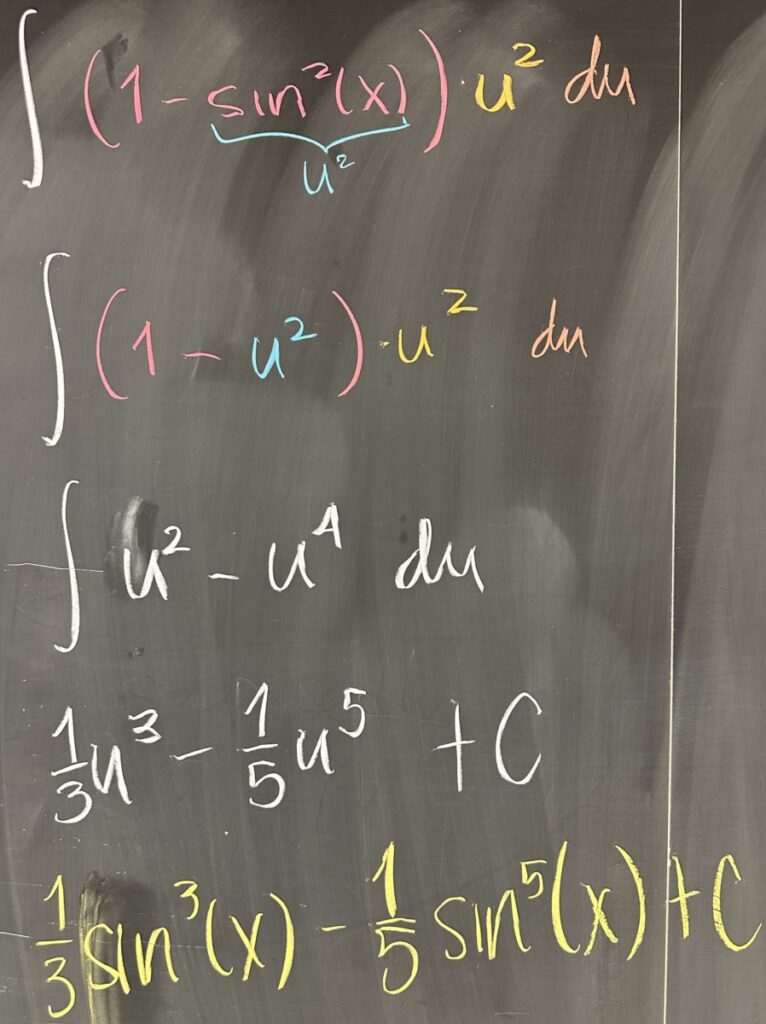 ∫ (1 - sin²(x)) · u² du
u²
∫ (1 - u²) · u² du
∫ u² - u⁴ du
1/3 u³ - 1/5 u⁵ + C
1/3 sin³(x) - 1/5 sin⁵(x) + C